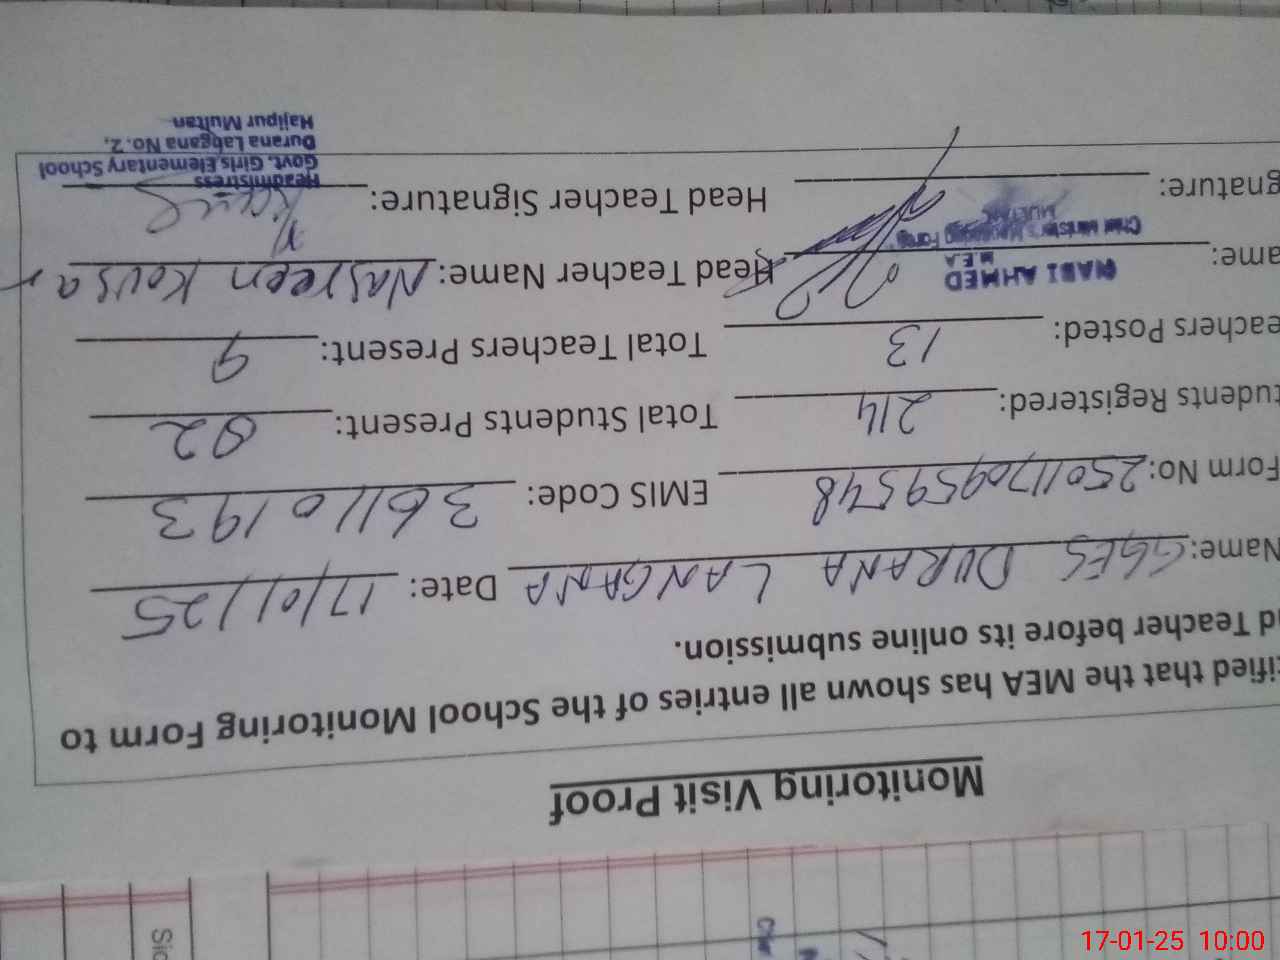 Monitoring Visit Proof
tified that the MEA has shown all entries of the School Monitoring Form to
d Teacher before its online submission.
Name: GGES DURANA LANGANA Date: 17/01/25
Form No: 2501170959548 EMIS Code: 36110193
tudents Registered: 214 Total Students Present: 02
eachers Posted: 13 Total Teachers Present: 9
ame: NABI AHMED Head Teacher Name: Nasreen Kousar
M.E.A
Chief Minister's Monitoring Force
MULTAN
gnature: Head Teacher Signature:
Headmistress
Govt. Girls Elementary School
Durana Labgana No. 2,
Hajipur Multan
17-01-25 10:00